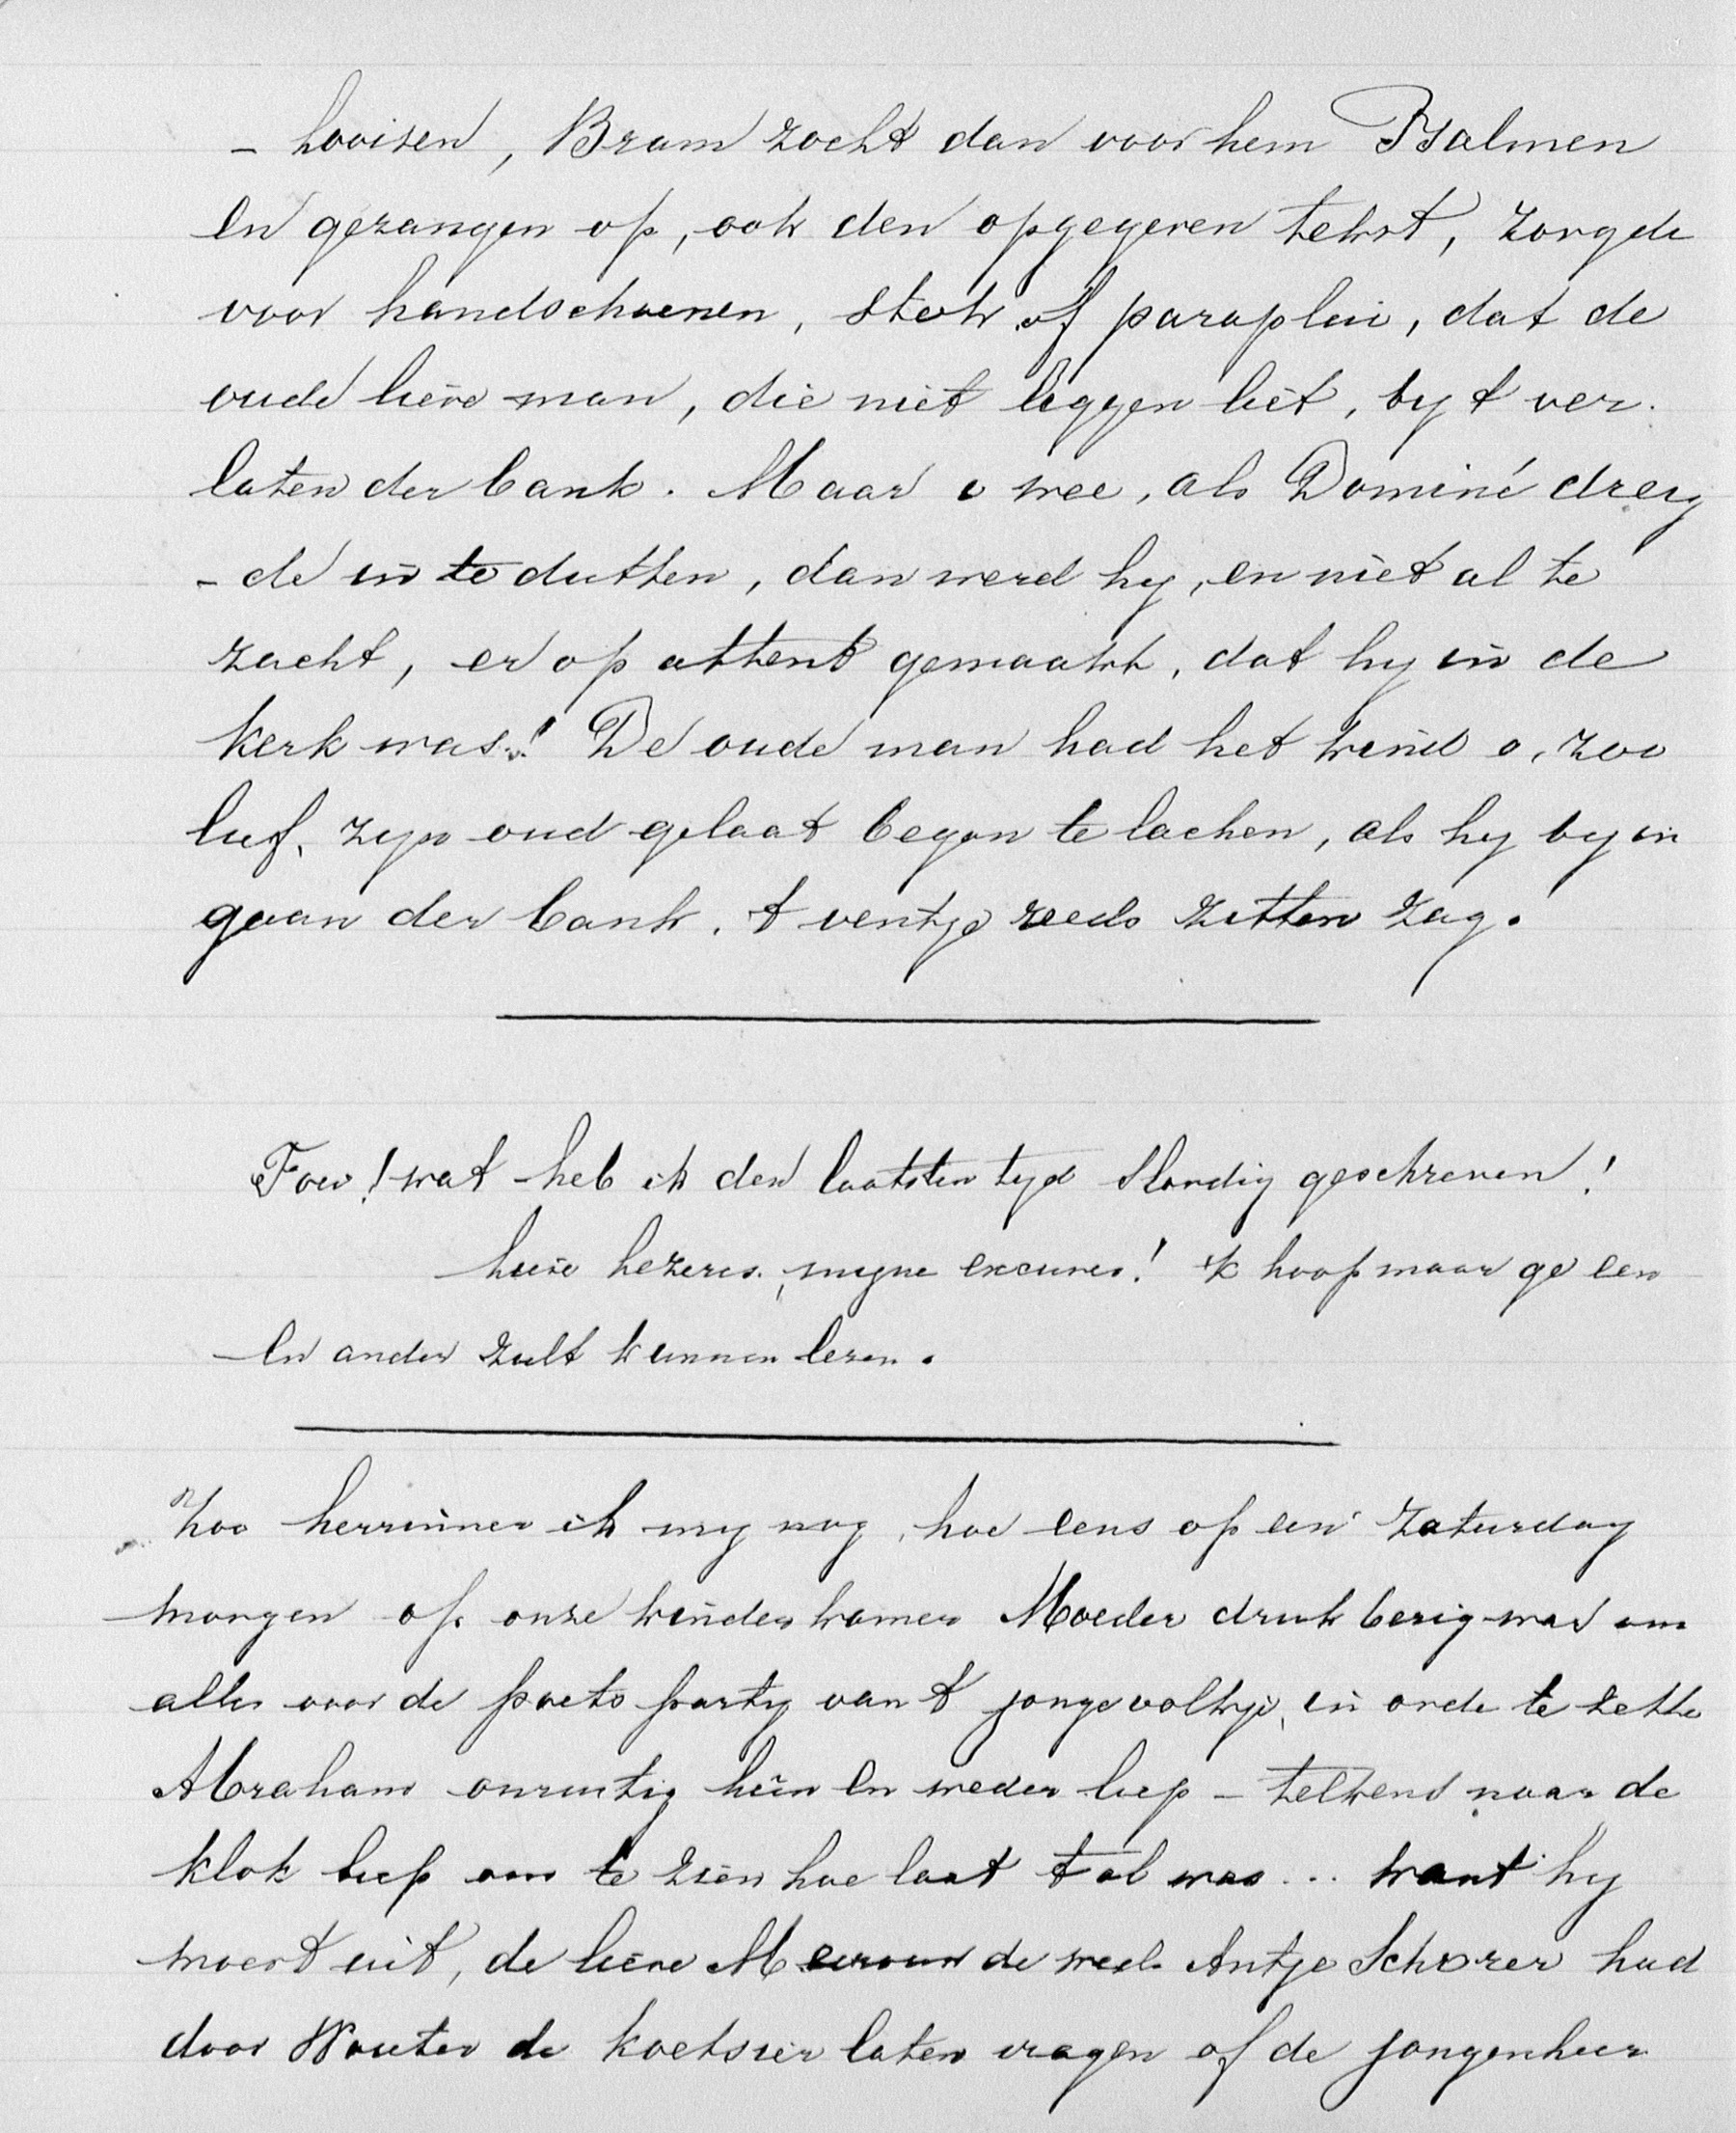 - hooizen, Bram zocht dan voor hem Psalmen
en gezangen op, ook den opgegeven tekst, zorgde
voor handschoenen, stok of paraplui, dat de
oude lieve man, die niet liggen liet, by t ver.
laten der bank. Maar o wee, als Dominé dreig
- de in te dutten, dan werd hy, en niet al te
zacht, er op attent gemaakt, dat hy in de
kerk was! De oude man had het kind o, zoo
lief, zyn oud gelaat begon te lachen, als hy by in
gaan der bank, t ventje reeds zitten zag.
Foei! wat heb ik den laatsten tyd slordig geschreven!
lieve lezeres, myne excuses! Ik hoop maar ge een
en ander zult kunnen lezen.
Zoo herrinner ik my nog, hoe eens op een Zaturdag
morgen op onze kinderkamer Moeder druk bezig was om
alles voor de poets party van t jonge volkje, in orde te zette
Abraham onrustig heen en weder liep - telkens naar de
klok liep om te zien hoe laat t al was... want hy
moest uit, de lieve M de wed. Antje Schorer had
door Wouter de koetsier laten vragen of de jongenheer